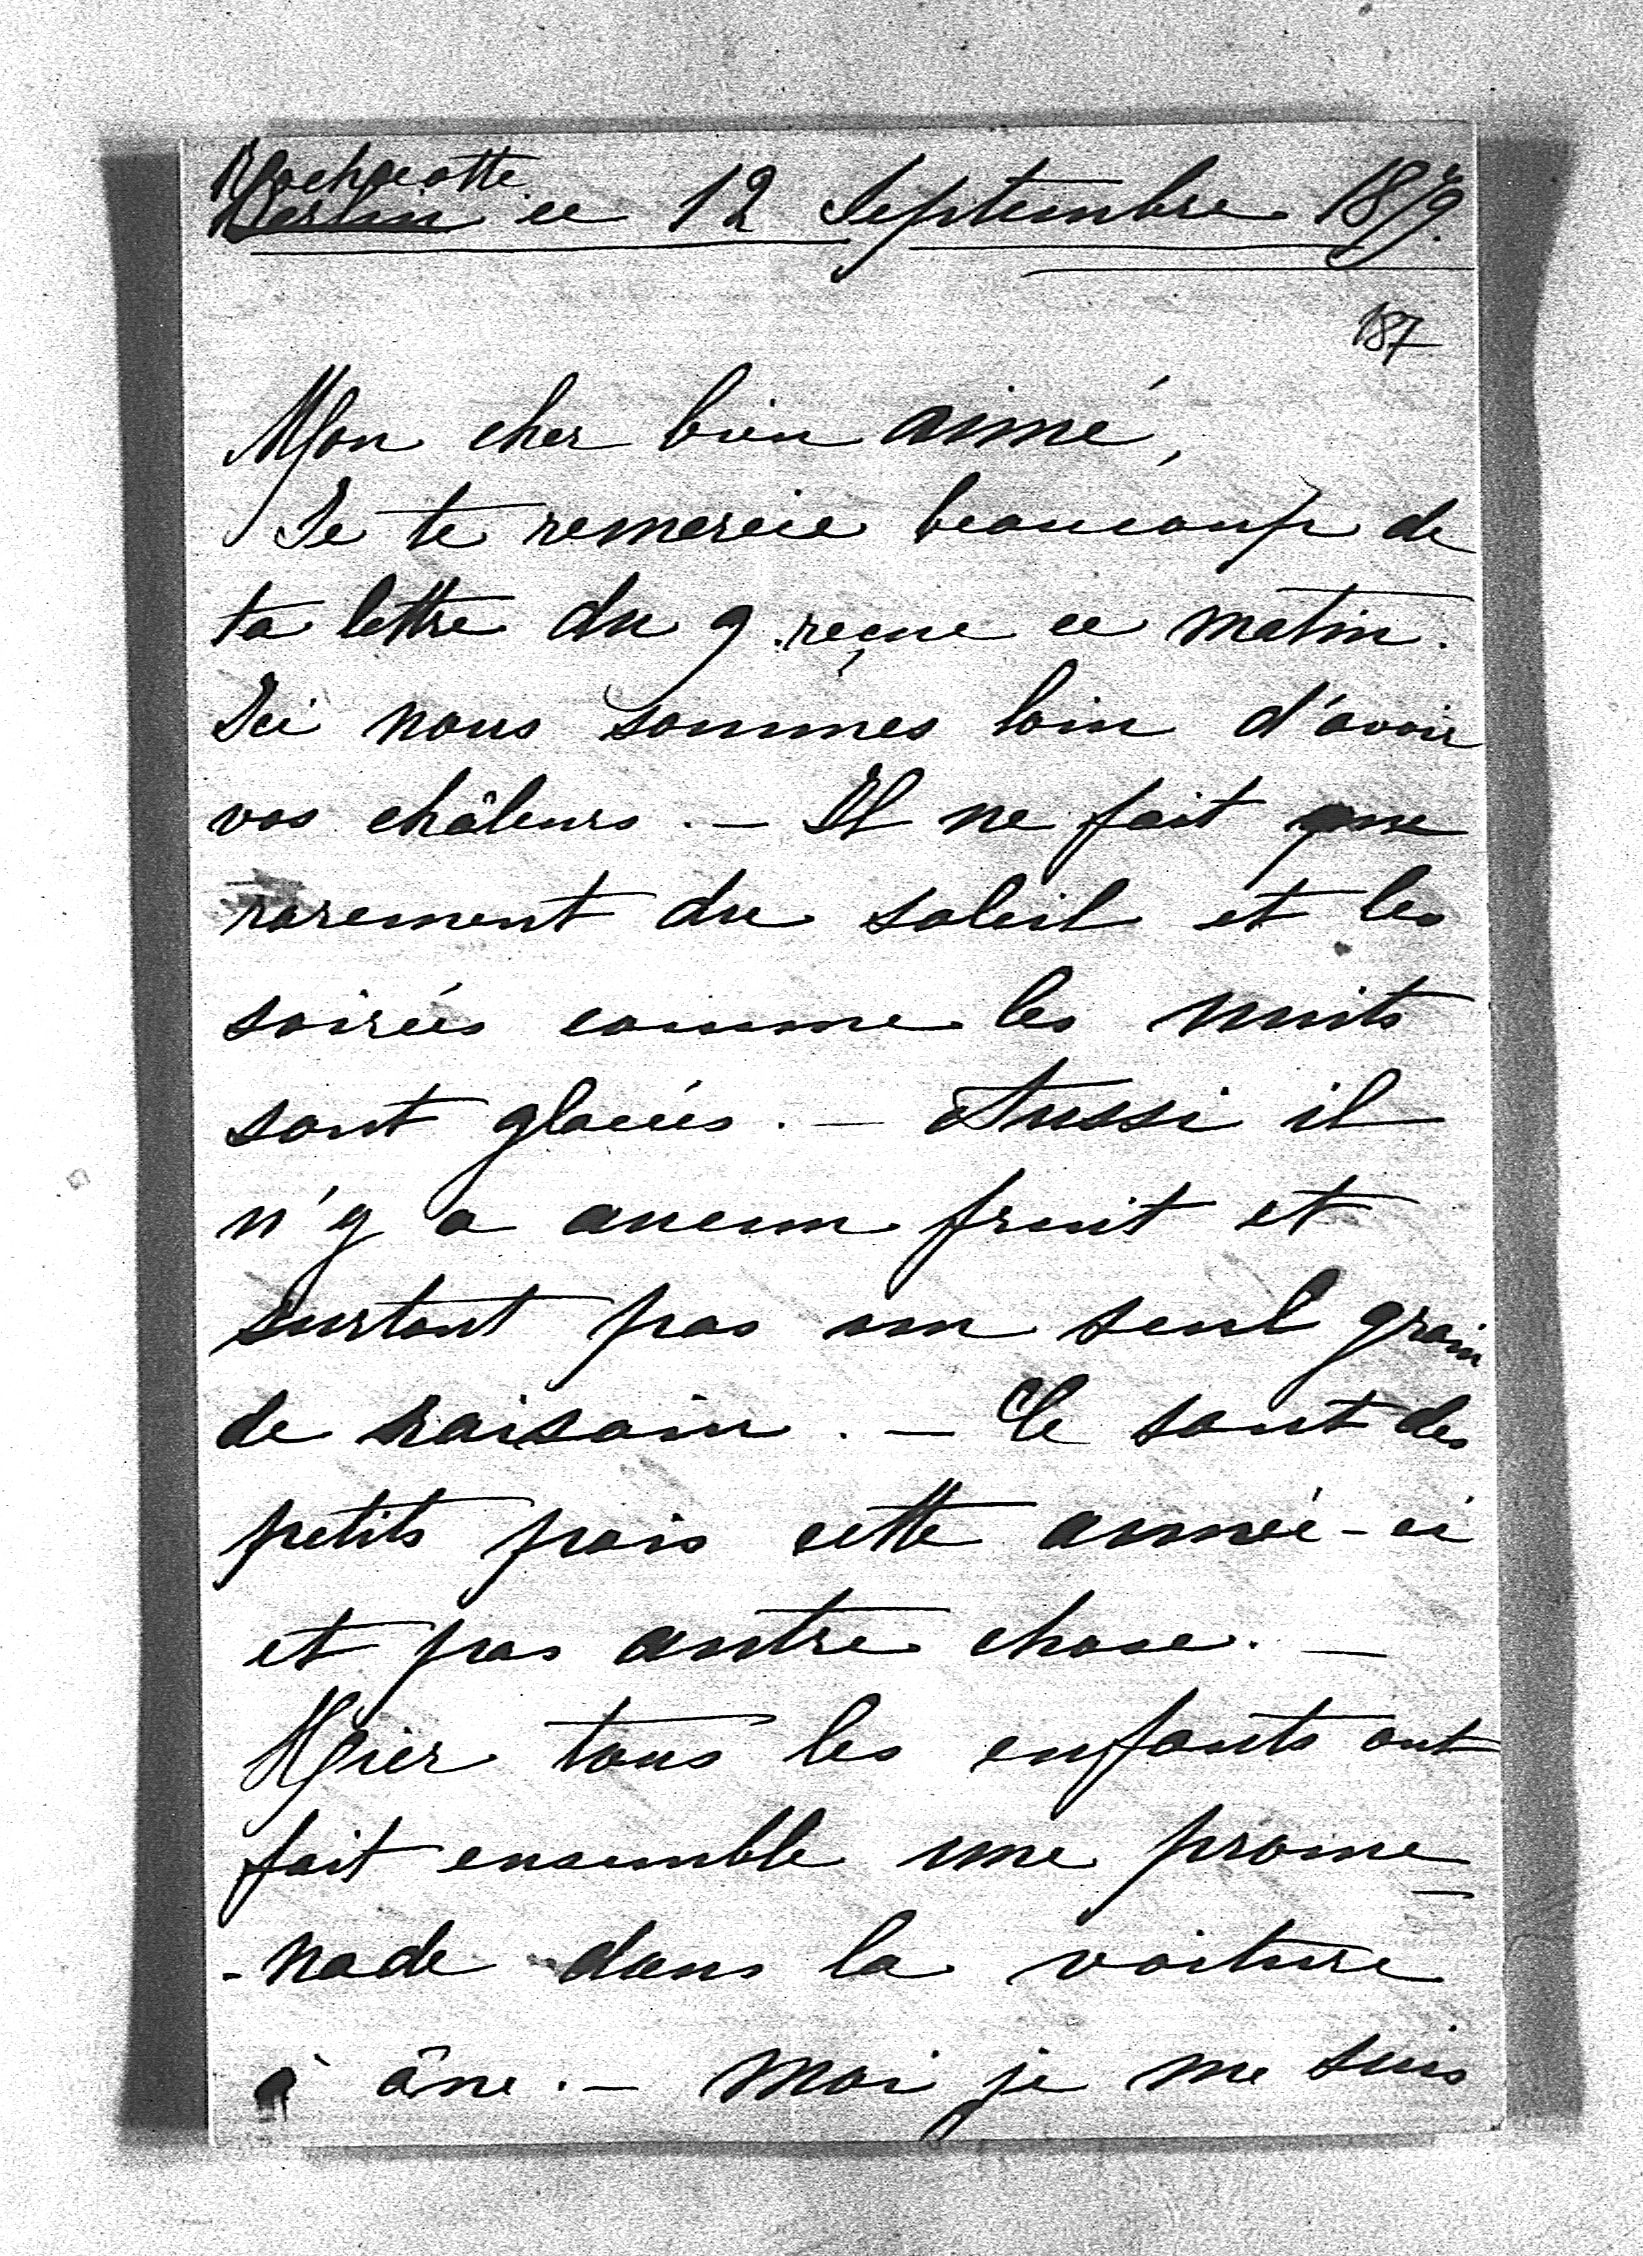 Rochecotte
Berlin ce 12 Septembre 1879.
187
Mon cher bien aimé,
Je te remercie beaucoup de
ta lettre du 9 reçue ce matin.
Ici nous sommes loin d'avoir
vos châleurs. — Il ne fait que
rarement du soleil et les
soirées comme les nuits
sont glacées. — Aussi il
n'y a aucun fruit et
surtout pas un seul grain
de raisain. — Ce sont des
petits pois cette année-ci
et pas autre chose. —
Hier tous les enfants ont
fait ensemble une prome-
-nade dans la voiture
à âne. — Moi je me suis